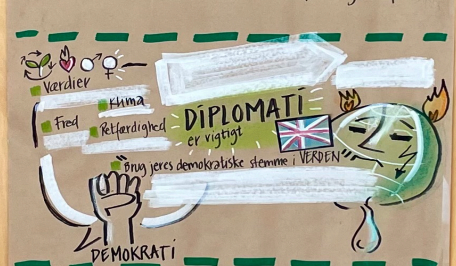 Værdier
Klima
Fred
Retfærdighed
DIPLOMATI
er vigtigt
"Brug jeres demokratiske stemme i VERDEN"
DEMOKRATI